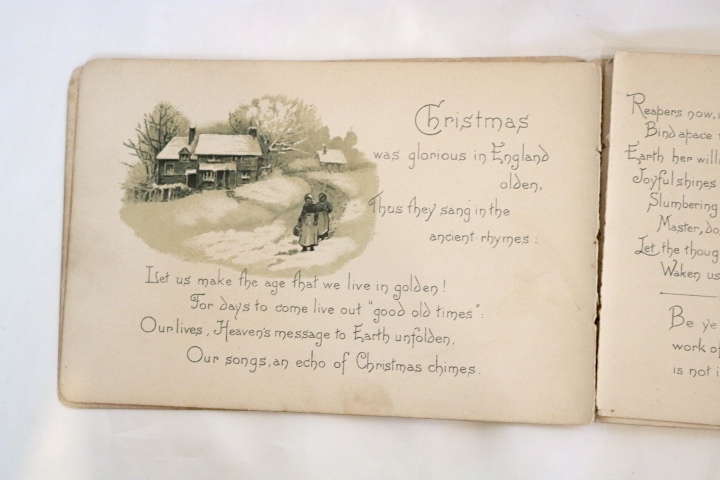 Christmas
was glorious in England
olden,
Thus they sang in the
ancient rhymes:
Let us make the age that we live in golden!
For days to come live out "good old times":
Our lives, Heaven's message to Earth unfolden,
Our songs, an echo of Christmas chimes.
Reapers now,
Bind apace
Earth her
Joyful shines
Slumbering
Master,
Let the
Waken us
Be ye
work of
is not